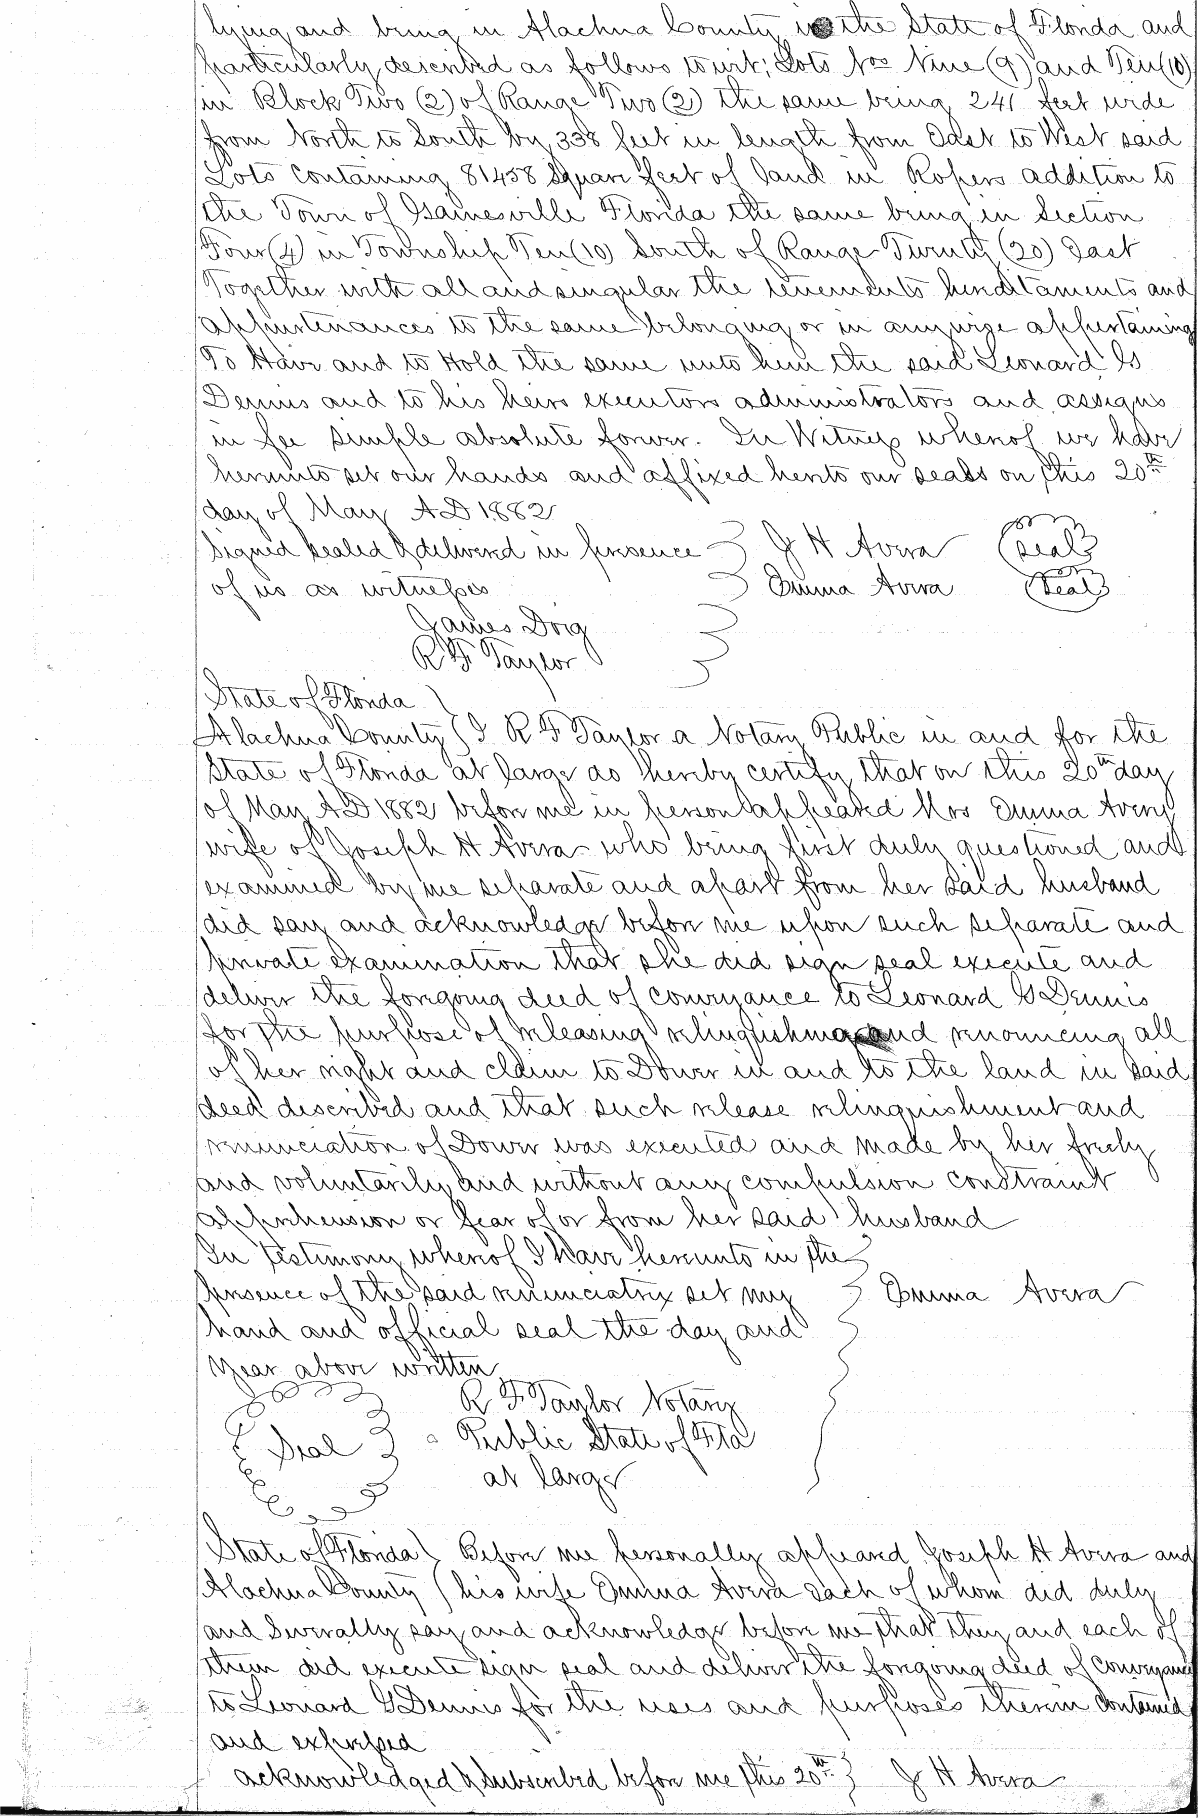 lying and being in Alachua County in the State of Florida and
particularly described as follows towit; Lots Nos Nine (9) and Ten (10)
in Block Two (2) of Range Two (2) the same being 241 feet wide
from North to South by 338 feet in length from East to West said
Lots containing 81458 Square feet of land in Ropers addition to
the Town of Gainesville Florida the same being in Section
Four (4) in Township Ten (10) South of Range Twenty (20) East
Together with all and singular the tenements hereditaments and
appurtenances to the same belonging or in anywise appertaining
To Have and to Hold the same unto him the said Leonard G
Dennis and to his heirs executors administrators and assigns
in fee simple absolute forever. In Witness whereof we have
hereunto set our hands and affixed hereto our seals on this 20th
day of May AD 1882
Signed sealed & delivered in presence } J H Avera (Seal)
of us as witnesses } Emma Avera (Seal)
James Doig
R F Taylor
State of Florida
Alachua County } I R F Taylor a Notary Public in and for the
State of Florida at large do hereby certify that on this 20th day
of May AD 1882 before me in person appeared Mrs Emma Avery
wife of Joseph H Avera who being first duly questioned and
examined by me separate and apart from her said husband
did say and acknowledge before me upon such separate and
private examination that she did sign seal execute and
deliver the foregoing deed of conveyance to Leonard G Dennis
for the purpose of releasing relinquishing and renouncing all
of her right and claim to Dower in and to the land in said
deed described and that such release relinquishment and
renunciation of Dower was executed and made by her freely
and voluntarily and without any compulsion constraint
apprehension or fear of or from her said husband
In testimony whereof I have hereunto in the
presence of the said renunciatrix set my } Emma Avera
hand and official seal the day and
year above written
R F Taylor Notary
Seal Public State of Fla
at large
State of Florida } Before me personally appeared Joseph H Avera and
Alachua County } his wife Emma Avera each of whom did duly
and severally say and acknowledge before me that they and each of
them did execute sign seal and deliver the foregoing deed of conveyance
to Leonard G Dennis for the uses and purposes therein contained
and expressed
acknowledged & subscribed before me this 20th } J H Avera